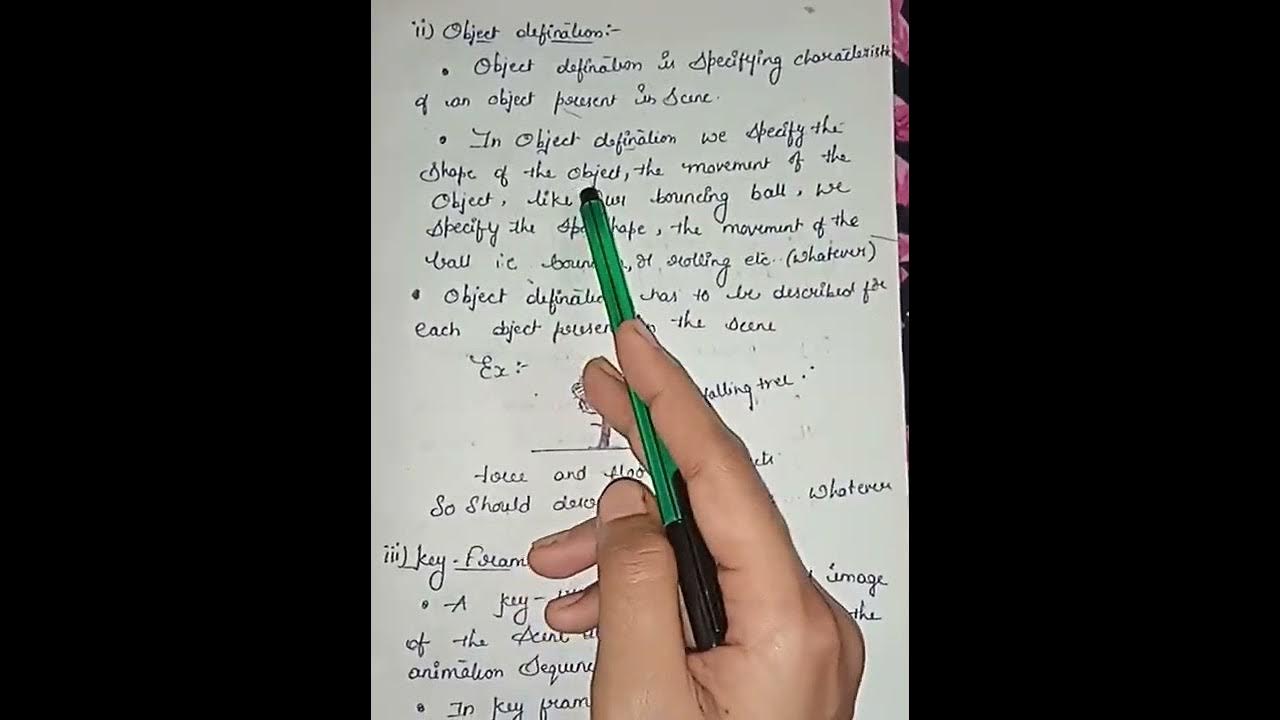 ii) Object defination:-
• Object defination is specifying characteristi
of an object present in scene.
• In Object defination we specify the
shape of the object, the movement of the
Object, like bouncing ball, we
specify the shape, the movement of the
ball i.e boun , or rolling etc.. (whatever)
• Object definatio has to be described for
each object presen in the scene
Ex:-
falling tree
tree and floo
So should desc whatever
iii) Key-Fram image
• A key- the
of the scene
animation sequenc
• In key fram